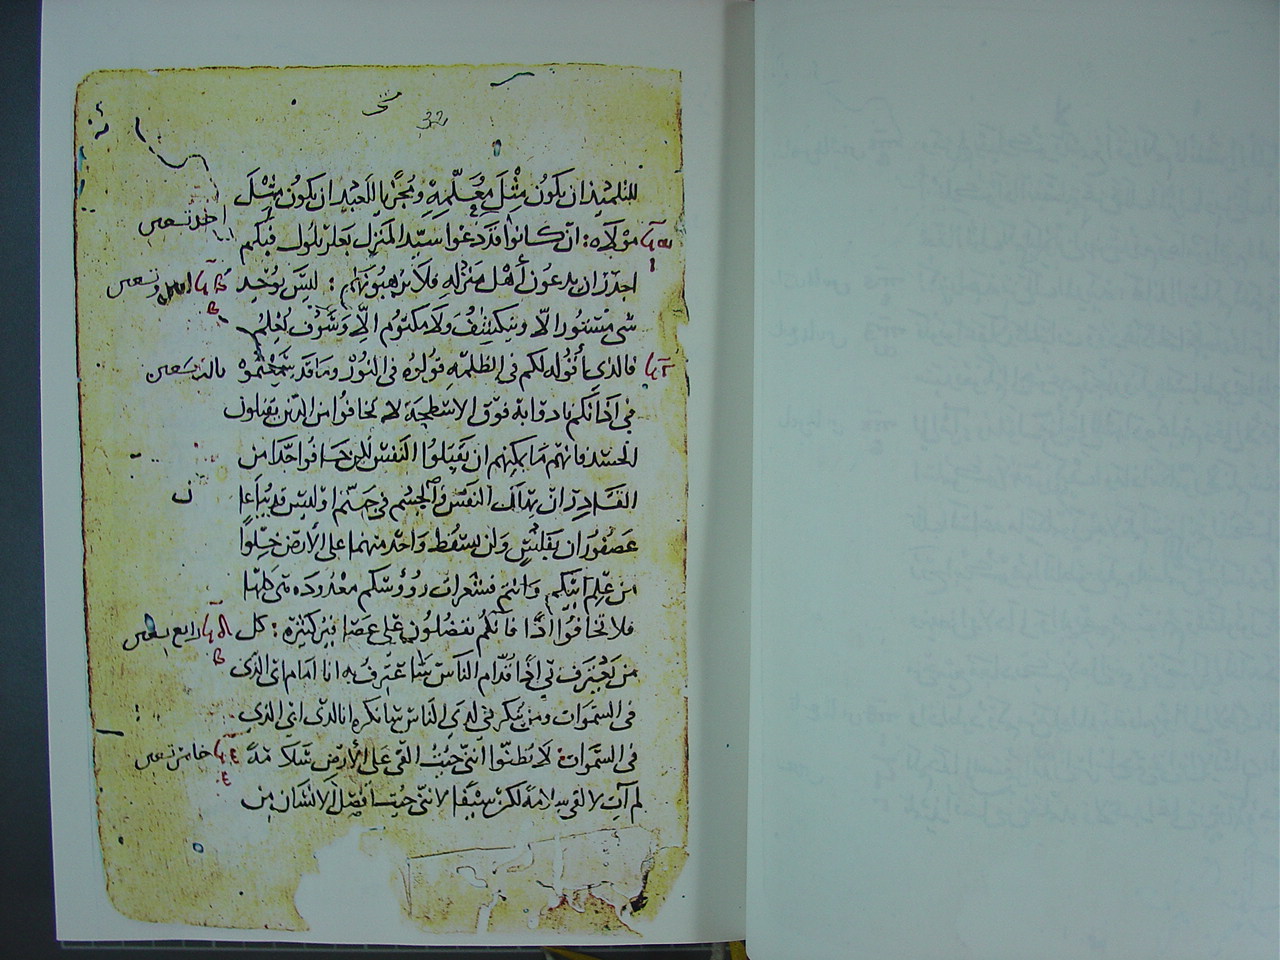 للتلميذ ان يكون مثل معلمه ومجزيا للعبد ان يكون مثل
مولاه: ان كانوا قد دعوا سيد المنزل بعلزبلول فبكم
اجدر ان يدعون أهل منزله فلا ترهبونهم: ليس يوجد
شي مستور الا وينكشف ولا مكتوم الا وسوف يُعلم
فالذي أقوله لكم في الظلمه قولوه في النور وما قد سمعتموه
في آذانكم نادوا به فوق الاسطحه لا تخافوا من الذين يقتلون
الجسد فانهم ما يمكنهم ان يقتلوا النفس لكن خافوا حدا من
القادر ان يهلك النفس والجسم في جهنم اوليس قد يباعا
عصفوران بفلس ولن يسقط واحد منهما على الأرض خلوا
من علم ابيكم وانتم فشعرات رووسكم معدوده هي كلها
فلا تخافوا اذا فانكم تفضلون على عصافير كثيره: كل
من يعترف بي اذا قدام الناس ساعترف به انا امام ابي الذي
في السموات ومن ينكرني لدى الناس سانكره انا لدى ابي الذي
في السموات لا تظنوا انني جيت القي على الأرض سلامة
لم آت لالقي سلامة لكن سيفا لانني جيت افصل الانسان من